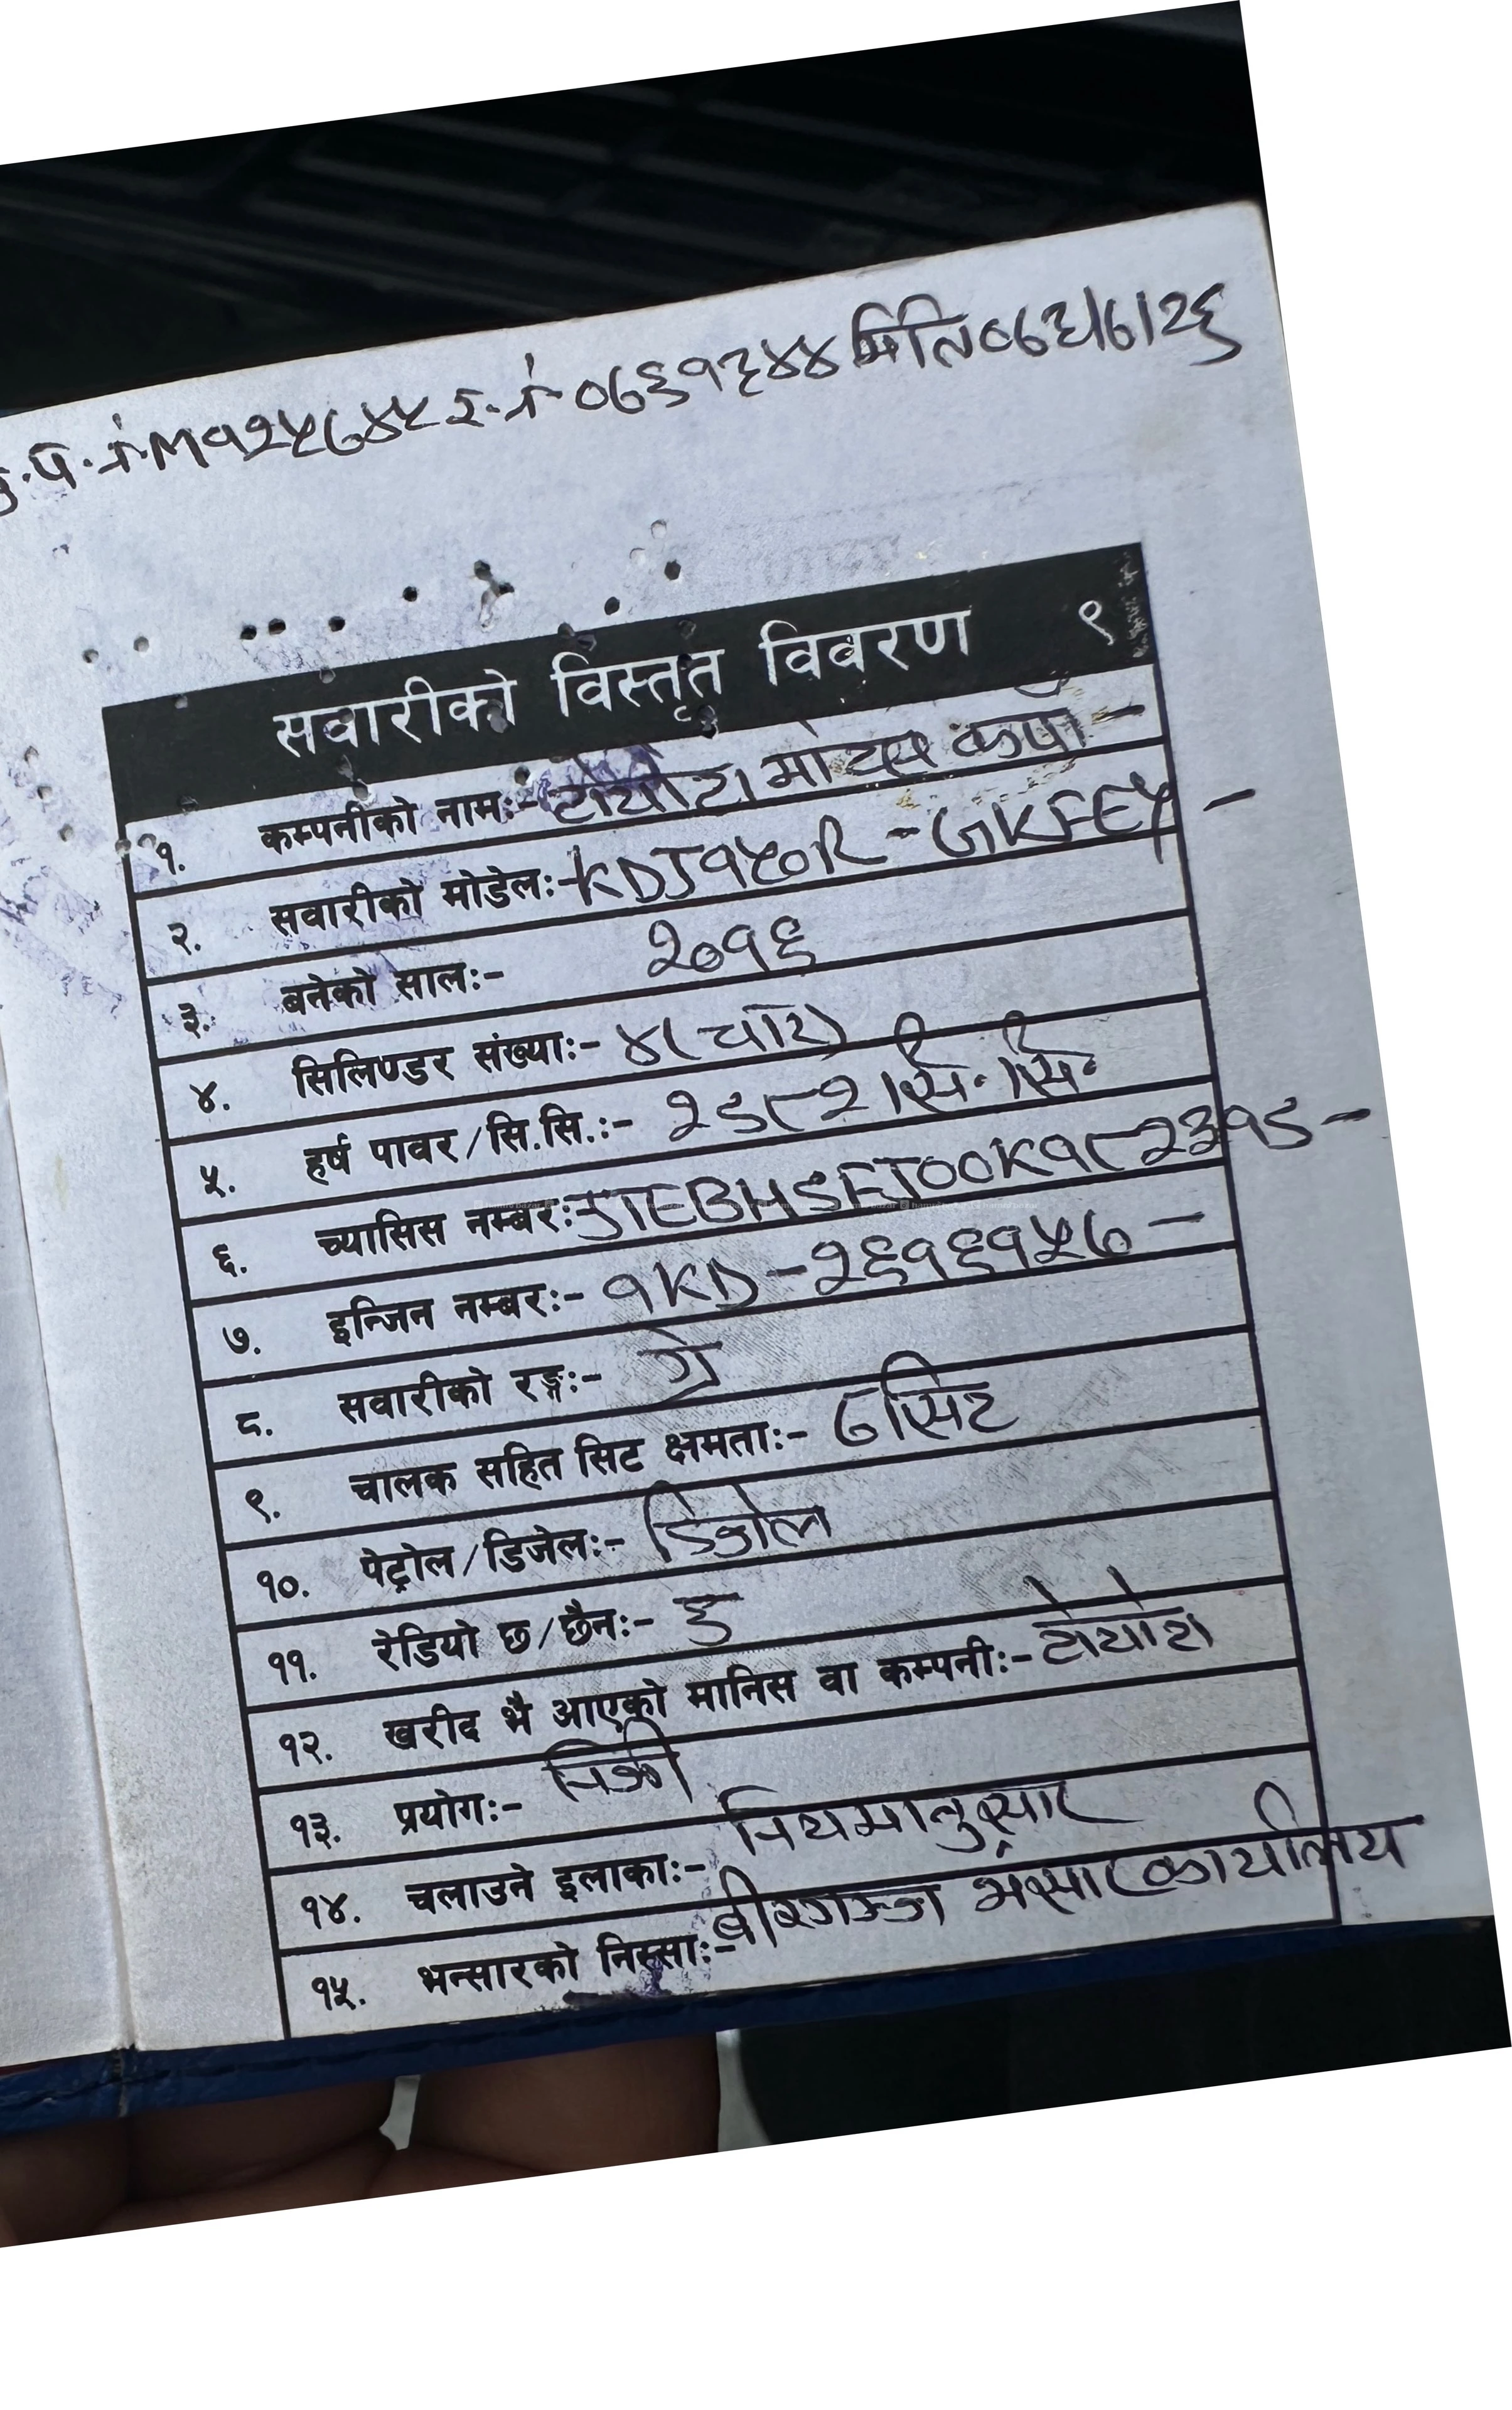 प्र.प.नं.M१२५७४५ र.नं.०७३१३४४ मिति०७३।७।२६
सवारीको विस्तृत विवरण ९
१. कम्पनीको नामः- टोयोटा मोटर कर्पो -
२. सवारीको मोडेलः- KDJ१५०R - GKFEY -
३. बनेको सालः- २०१६
४. सिलिण्डर संख्याः- ४(चार)
५. हर्ष पावर/सि.सि.:- २९८२ सि.सि.
६. च्यासिस नम्बरः- JTEBH9FJ00K१८२३१९ -
७. इन्जिन नम्बरः- १KD-२६१६१५७ -
८. सवारीको रङ्गः- ग्रे
९. चालक सहित सिट क्षमताः- ७ सिट
१०. पेट्रोल/डिजेलः- डिजेल
११. रेडियो छ/छैनः- छ
१२. खरीद भै आएको मानिस वा कम्पनीः- टोयोटा
१३. प्रयोगः- निजी
१४. चलाउने इलाकाः- नियमानुसार
१५. भन्सारको निस्साः- वीरगञ्ज भन्सार कार्यालय